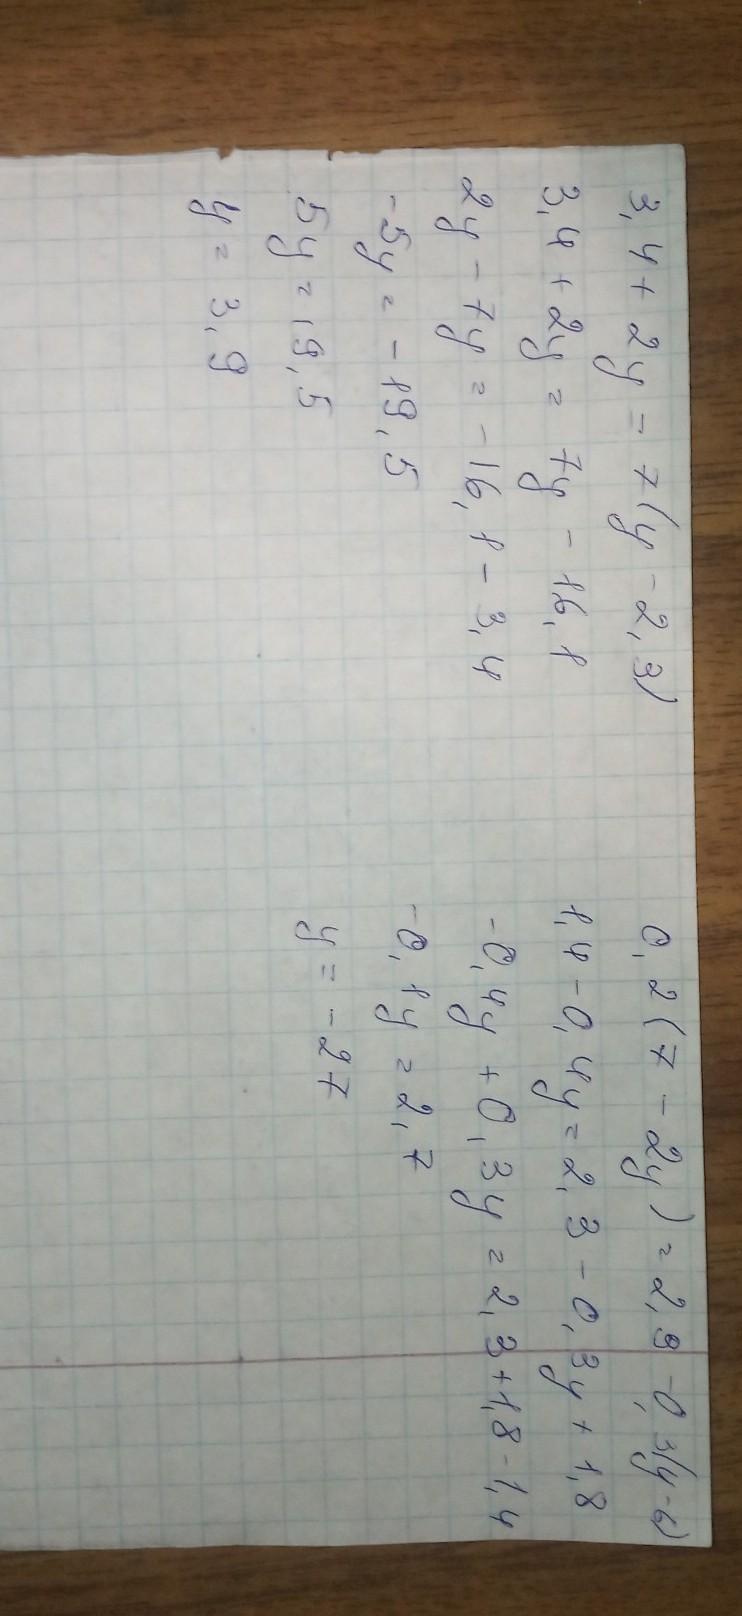 3,4 + 2y = 7(y - 2,3)
3,4 + 2y = 7y - 16,1
2y - 7y = -16,1 - 3,4
-5y = -19,5
5y = 19,5
y = 3,9
0,2(7 - 2y) = 2,3 - 0,3(y-6)
1,4 - 0,4y = 2,3 - 0,3y + 1,8
-0,4y + 0,3y = 2,3 + 1,8 - 1,4
-0,1y = 2,7
y = -27